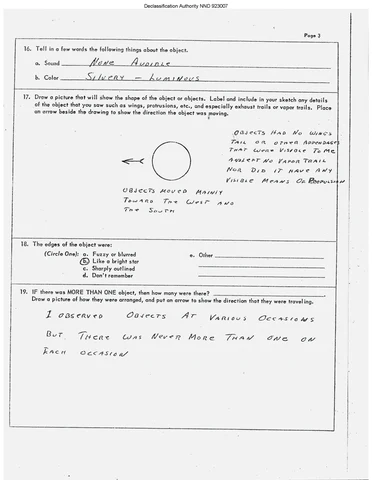 Declassification Authority NND 923007
Page 3
16. Tell in a few words the following things about the object.
a. Sound NONE AUDIBLE
b. Color SILVERY - LUMINOUS
17. Draw a picture that will show the shape of the object or objects. Label and include in your sketch any details
of the object that you saw such as wings, protrusions, etc., and especially exhaust trails or vapor trails. Place
an arrow beside the drawing to show the direction the object was moving.
OBJECTS HAD NO WINGS
TAIL OR OTHER APPENDAGES
THAT WERE VISIBLE TO ME
NO VAPOR TRAIL
NOR DID IT HAVE ANY
VISIBLE MEANS OF PROPULSION
OBJECTS MOVED MAINLY
TOWARD THE WEST AND
THE SOUTH
18. The edges of the object were:
(Circle One): a. Fuzzy or blurred
b. Like a bright star
c. Sharply outlined
d. Don't remember
e. Other
19. IF there was MORE THAN ONE object, then how many were there?
Draw a picture of how they were arranged, and put an arrow to show the direction that they were traveling.
I OBSERVED OBJECTS AT VARIOUS OCCASIONS
BUT THERE WAS NEVER MORE THAN ONE ON
EACH OCCASION